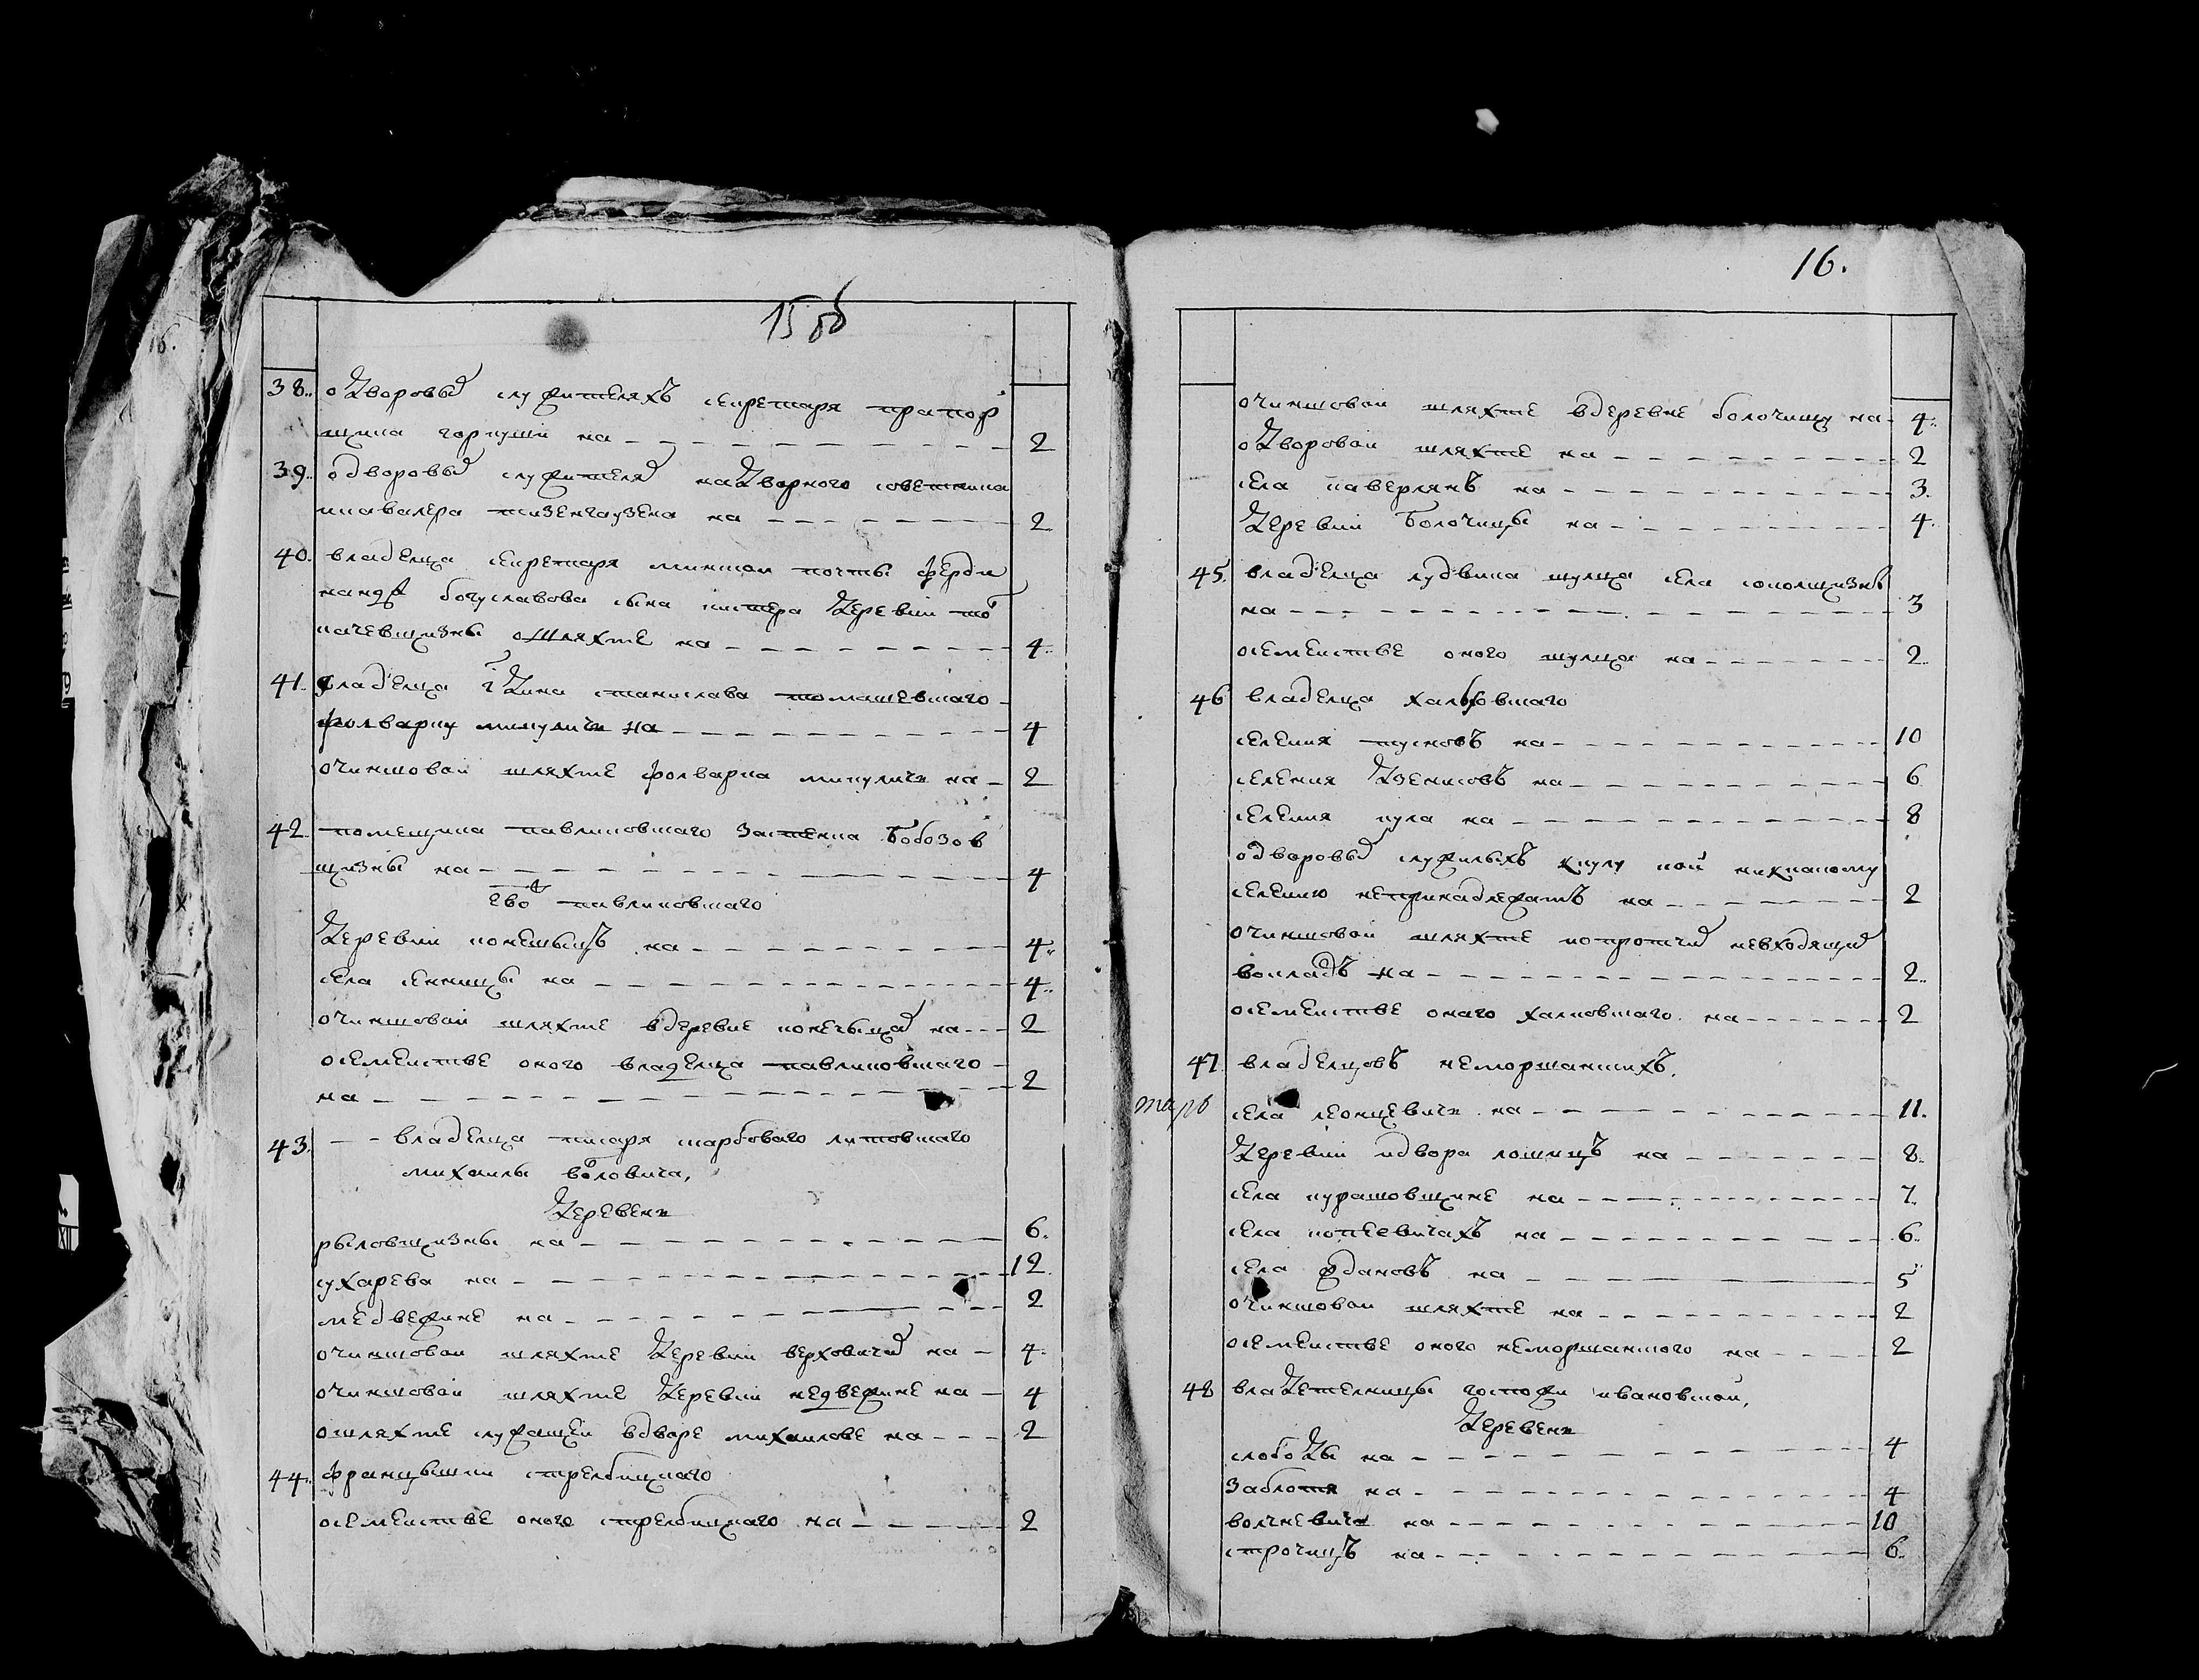 15 об
38. одворовых служителяхъ секретаря прапор
щика горнуши на 2
39. одворовых служителях надворного советника
икавалера тизенгаузена на 2
40. владелца секретаря минскои почты ферди
нанда богуславова сына кистера деревни то
качевщизны ошляхте на 4
41. владелца станислава томашевскаго
фолварку микуличь на 4
очиншовои шляхте фолварка микуличь на 2
42. помещика павликовскаго застенка бобозов
щизны на 4
ево павликовскаго
деревни на 4
села сенницы на 4
очиншовои шляхте вдеревне на 2
осемеистве оного владелца павликовскаго
на 2
43. владелца писаря скарбоваго литовскаго
михаилы воловича,
деревень
рыловщизны на 6.
сухарева на 12
медвежине на 2
очиншовои шляхте деревни верховичах на 4
очиншовои шляхте деревни медвежине на 4
ошляхте служащеи вдворе михаилове на 2
44. францышки стрелбицкаго
осемеистве оного стрелбицкаго на 2
16.
очиншовои шляхте вдеревне болочицу на 4
одворовои шляхте на 2
села каверлянъ на 3.
деревни болочицы на 4
45. владелца лудвика шулца села соколщизнъ
на 3
осемеистве оного шулца на 2
46 владелца халковскаго
селения на 10
селения денисовъ на 6
селения кула на 8
одворовых служилыхъ ккулу кои никкакому
селению непринадлежатъ на 2
очиншовои шляхте невходящих
вокладъ на 2
осемеистве оного халковскаго на 2
47 владелцовъ неморшанскихъ.
села леонцевичь на 11.
деревни идвора лошицъ на 8
села курашовщине на 7.
села копиевичахъ на 6
села ждановъ на 5
очиншовои шляхте на 2
осемеистве оного неморшанского на 2
48 владетелницы госпожи ивановскои,
деревень
слободы на 4
заблотя на 4
волчкевичь на 10
строчицъ на 6